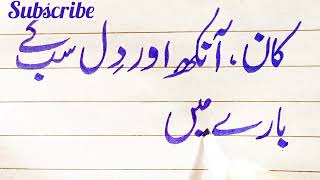 Subscribe
کان، آنکھ اور دِل سب کے
بارے میں